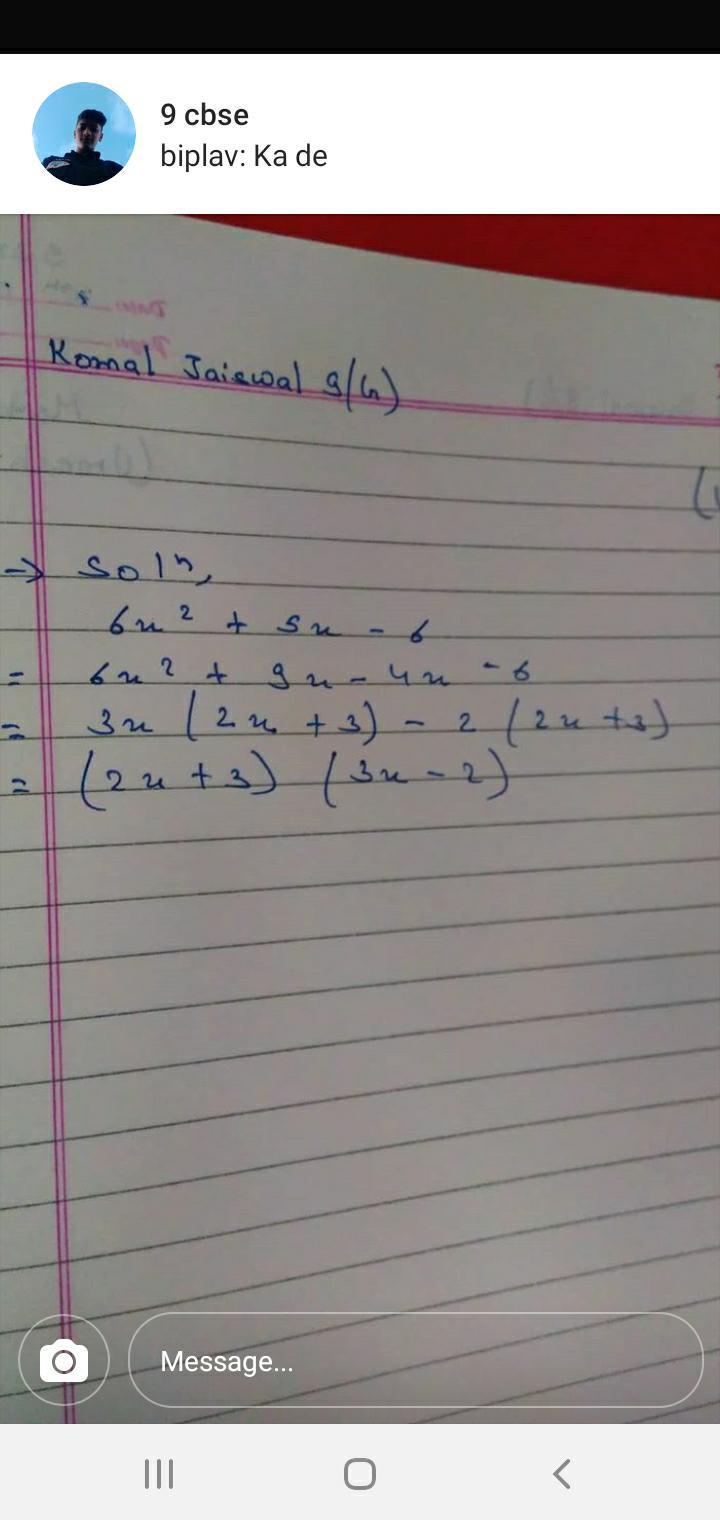 9 cbse
biplav: Ka de
Komal Jaiswal 9/(G)
→ Solⁿ,
6x² + 5x - 6
= 6x² + 9x - 4x - 6
= 3x (2x + 3) - 2 (2x + 3)
= (2x + 3) (3x - 2)
Message...